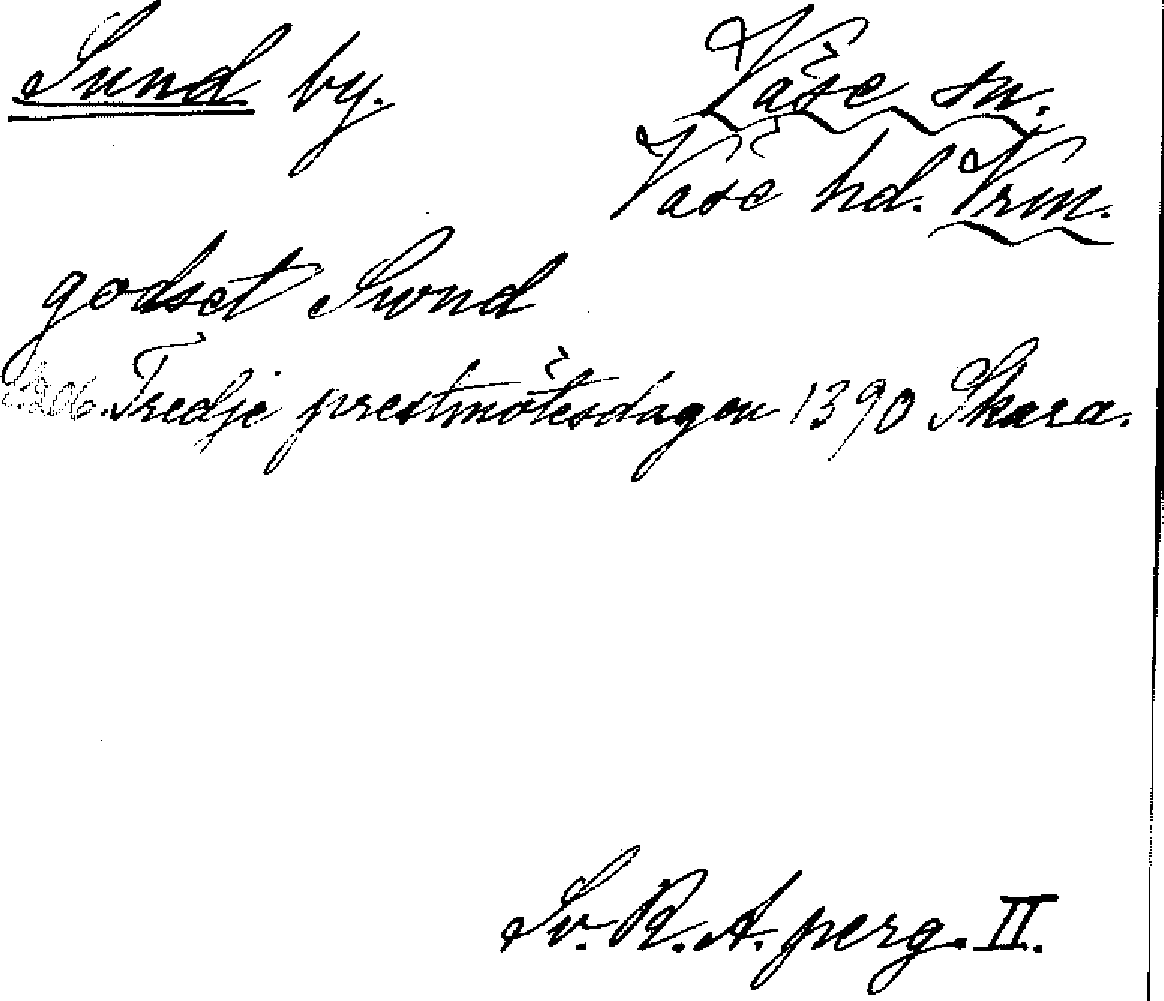 Sund by.
Väse sn.
Väse hd. Vrm.
godset Swnd
206. Tredje prestmötesdagen 1390 Skara.
Sv. R. A. perg. II.